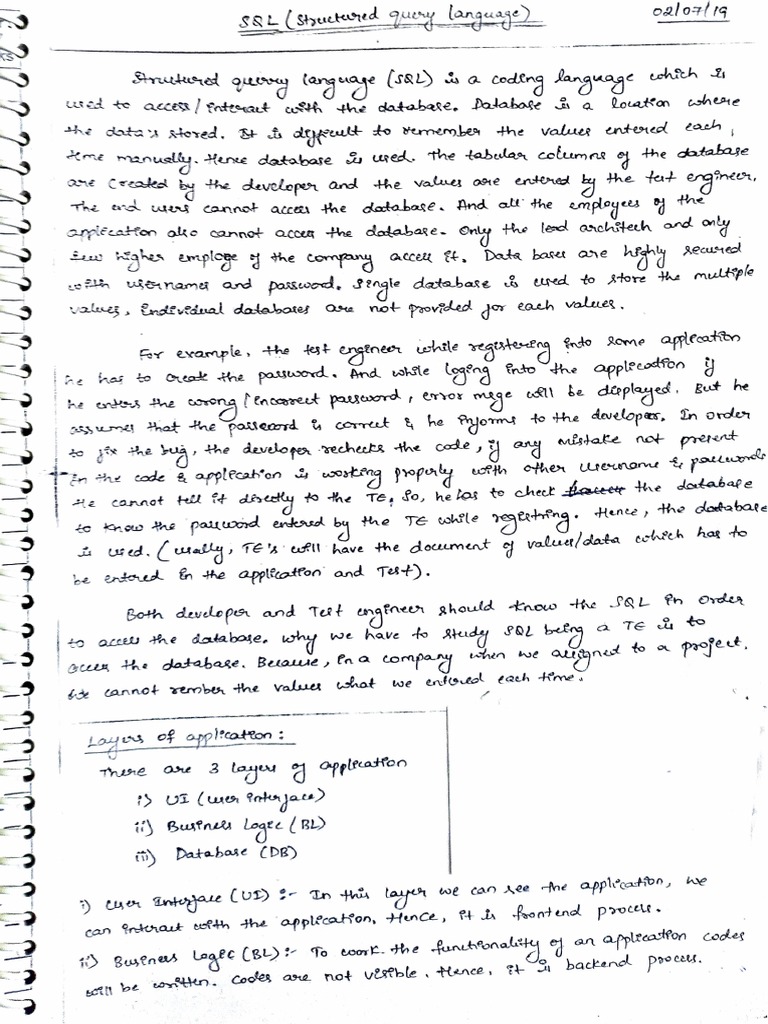 SQL (Structured query language)
02/07/19
Structured querry language (SQL) is a coding language which is
used to access/interact with the database. Database is a location where
the data's stored. It is difficult to remember the values entered each
time manually. Hence database is used. The tabular columns of the database
are created by the developer and the values are entered by the test engineer.
The end users cannot access the database. And all the employees of the
application also cannot access the database. Only the lead architech and only
few higher employe of the company access it. Data bases are highly secured
with usernames and password. Single database is used to store the multiple
values, individual databases are not provided for each values.
For example, the test engineer while registering into some application
he has to create the password. And while loging into the application if
he enters the wrong/incorrect password, error msge will be displayed. But he
assumes that the password is correct & he informs to the developer. In order
to fix the bug, the developer rechecks the code, if any mistake not present
in the code & application is working properly with other username & passwords
He cannot tell it directly to the TE. So, he has to check the database
to know the password entered by the TE while registring. Hence, the database
is used. (usually, TE's will have the document of values/data which has to
be entered in the application and Test).
Both developer and Test engineer should know the SQL in order
to access the database. why we have to study SQL being a TE is to
access the database. Because, in a company when we assigned to a project.
We cannot rember the values what we entered each time.
Layers of application:
There are 3 layers of application
i) UI (user interface)
ii) Business Logic (BL)
iii) Database (DB)
i) User Interface (UI) :- In this layer we can see the application, we
can interact with the application. Hence, it is frontend process.
ii) Business Logic (BL):- To work the functionality of an application codes
will be written. Codes are not visible. Hence, it is backend process.